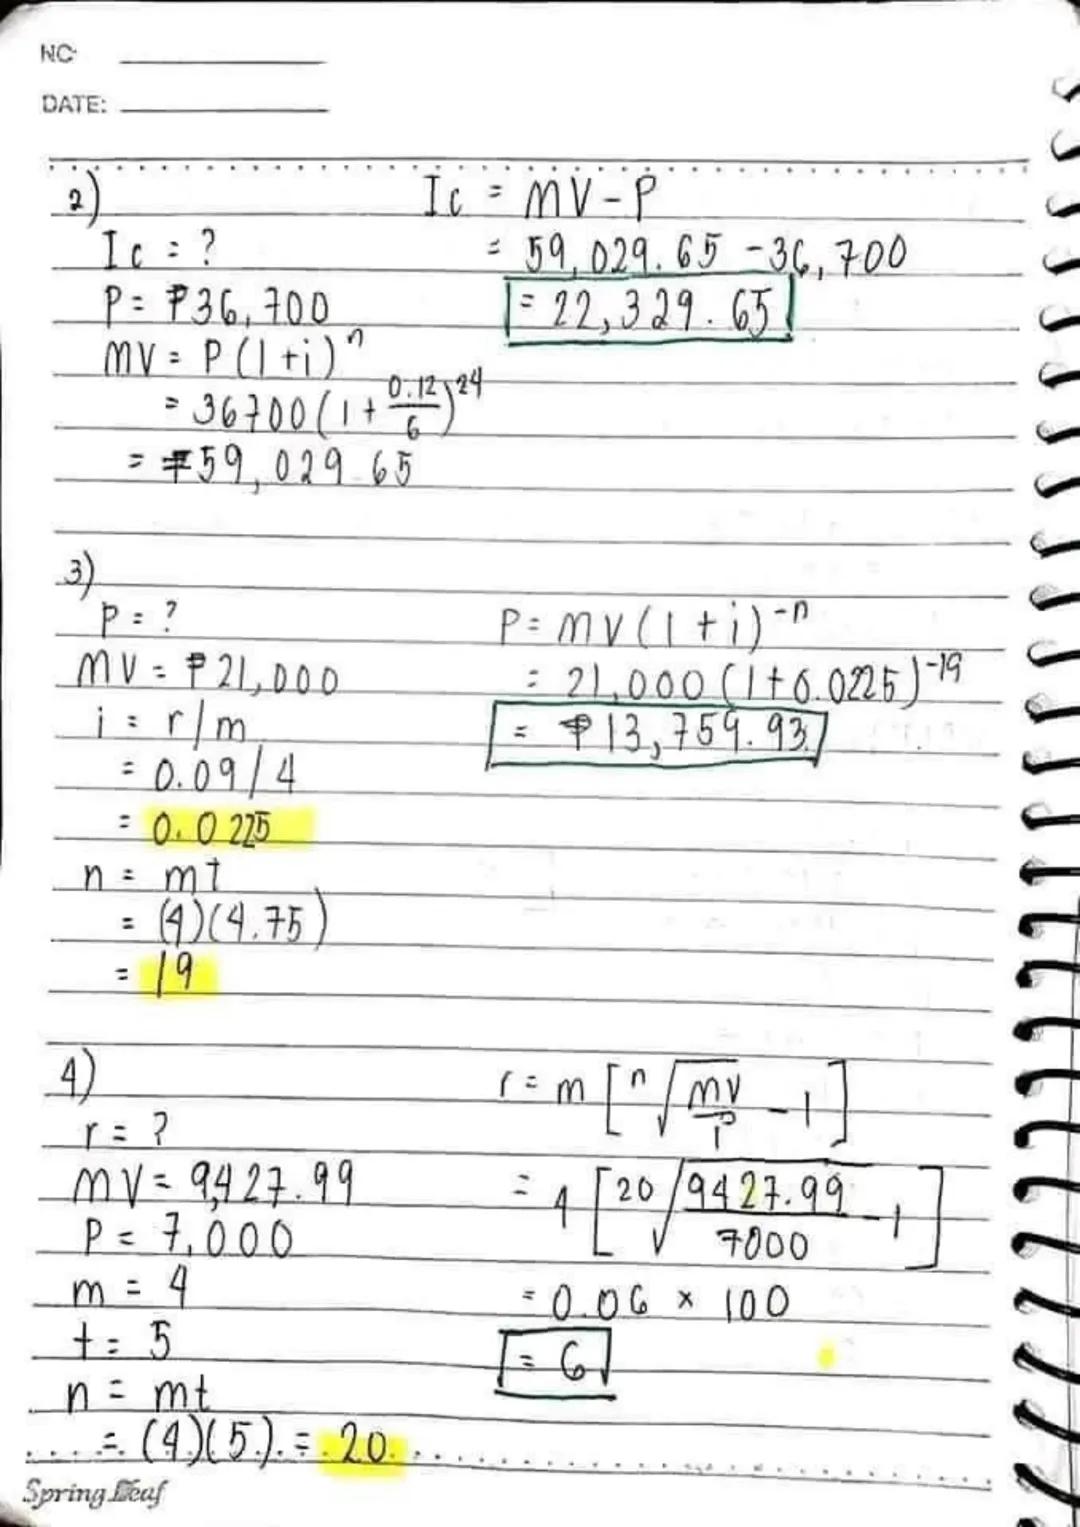 NO:
DATE:
2)
Ic = ?
P = ₱36,700
MV = P(1+i)^n
= 36700(1+0.12/6)^24
= ₱59,029.65
Ic = MV-P
= 59,029.65 - 36,700
= 22,329.65
3)
P = ?
MV = ₱21,000
i = r/m
= 0.09/4
= 0.0225
n = mt
= (4)(4.75)
= 19
P = MV(1+i)^-n
= 21,000(1+0.0225)^-19
= ₱13,759.93
4)
r = ?
MV = 9,427.99
P = 7,000
m = 4
t = 5
n = mt
= (4)(5) = 20
r = m[n√MV/P -1]
= 4[20√9427.99/7000 -1]
= 0.06 × 100
= 6
Spring Leaf